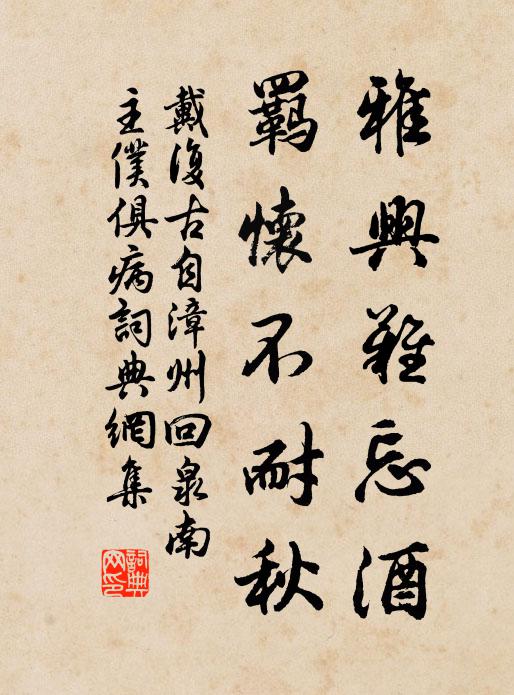 雅興難忘酒
羈懷不耐秋
戴復古自漳州回泉南
主僕俱病詞典網集
詞典网印